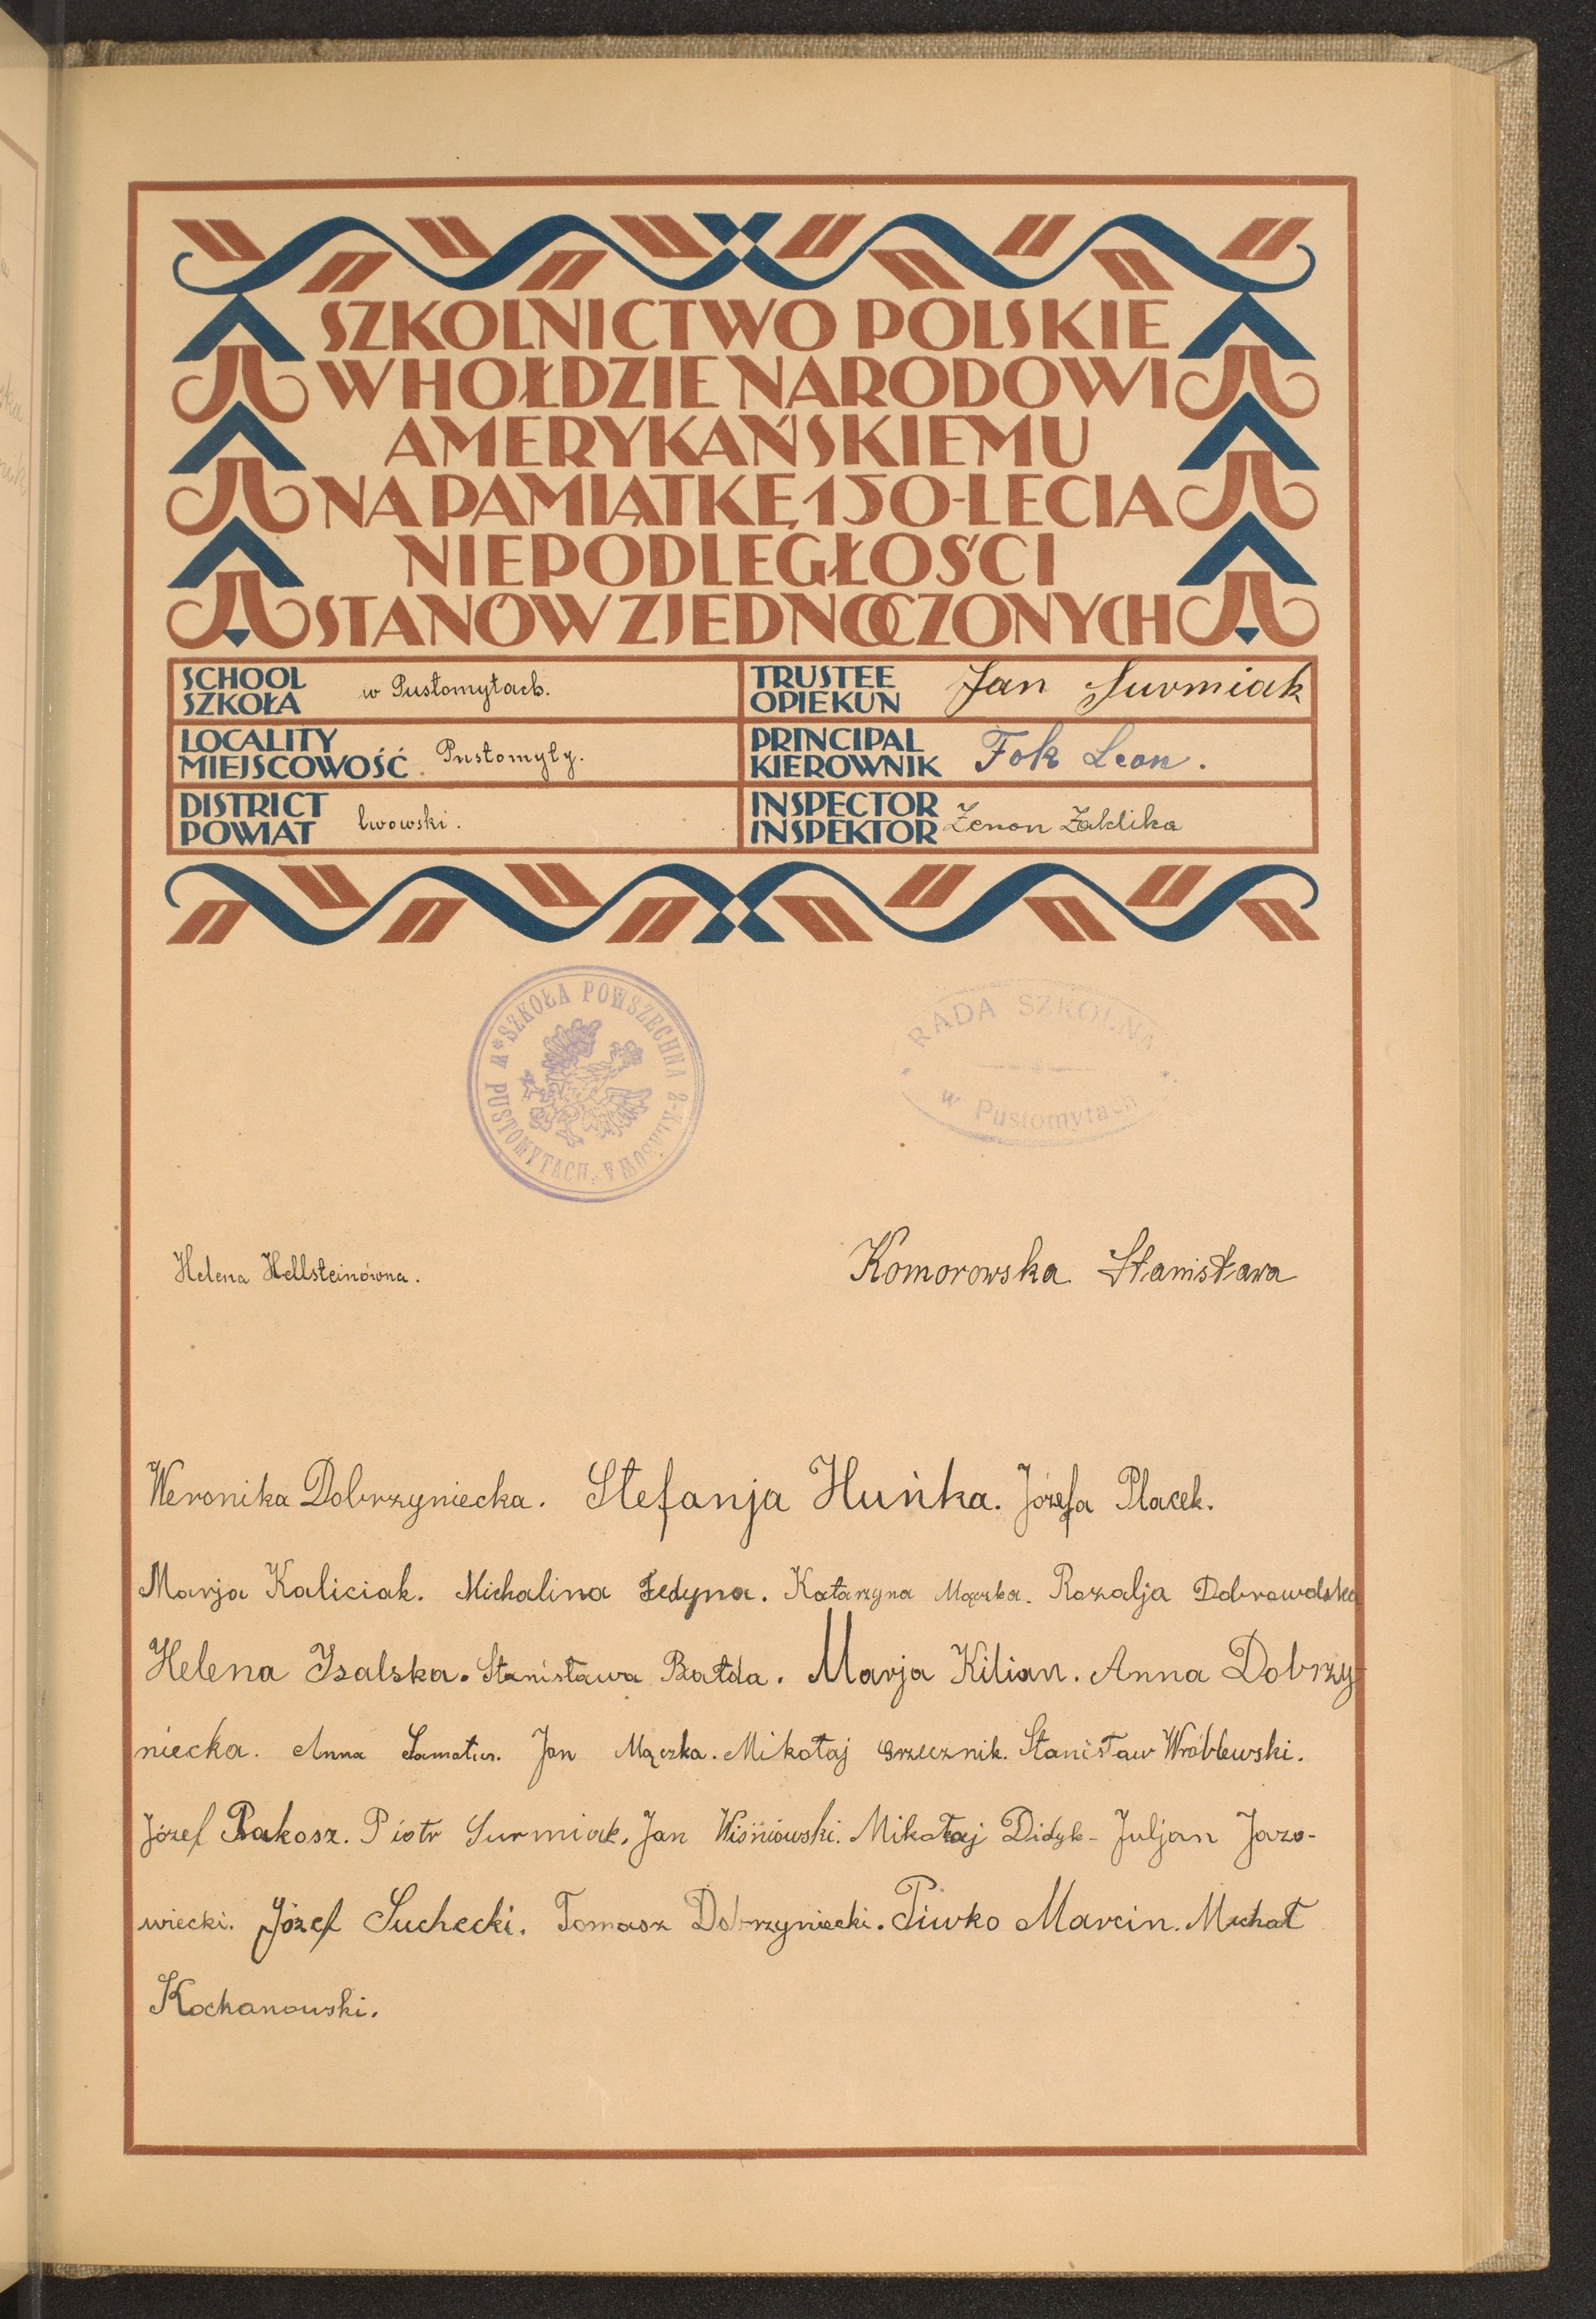 SZKOLNICTWO POLSKIE
W HOŁDZIE NARODOWI
AMERYKAŃSKIEMU
NA PAMIĄTKĘ 150-LECIA
NIEPODLEGŁOŚCI
STANÓW ZJEDNOCZONYCH
SCHOOL
SZKOŁA w Pustomytach.
TRUSTEE
OPIEKUN Jan Surmiak
LOCALITY
MIEJSCOWOŚĆ Pustomyty.
PRINCIPAL
KIEROWNIK Fok Leon.
DISTRICT
POWIAT lwowski.
INSPECTOR
INSPEKTOR Zenon Żaklika
SZKOŁA POWSZECHNA 2-KLASOWA
W PUSTOMYTACH
RADA SZKOLNA
w Pustomytach
Helena Hellsteinówna.
Komorowska Stanisława
Weronika Dobrzyniecka. Stefanja Huńka. Józefa Placek.
Marja Kaliciak. Michalina Fedyna. Katarzyna Mączka. Rozalja Dobrowolska
Helena Izalska. Stanisława Bałda. Marja Kilian. Anna Dobrzy
niecka. Anna Jan Mączka. Mikołaj Grzecznik. Stanisław Wróblewski.
Józef Rakosz. Piotr Surmiak. Jan Wiśniowski. Mikołaj Didyk - Juljan Jazo-
wiecki. Józef Suchecki. Tomasz Dobrzyniecki. Piwko Marcin. Michał
Kochanowski.